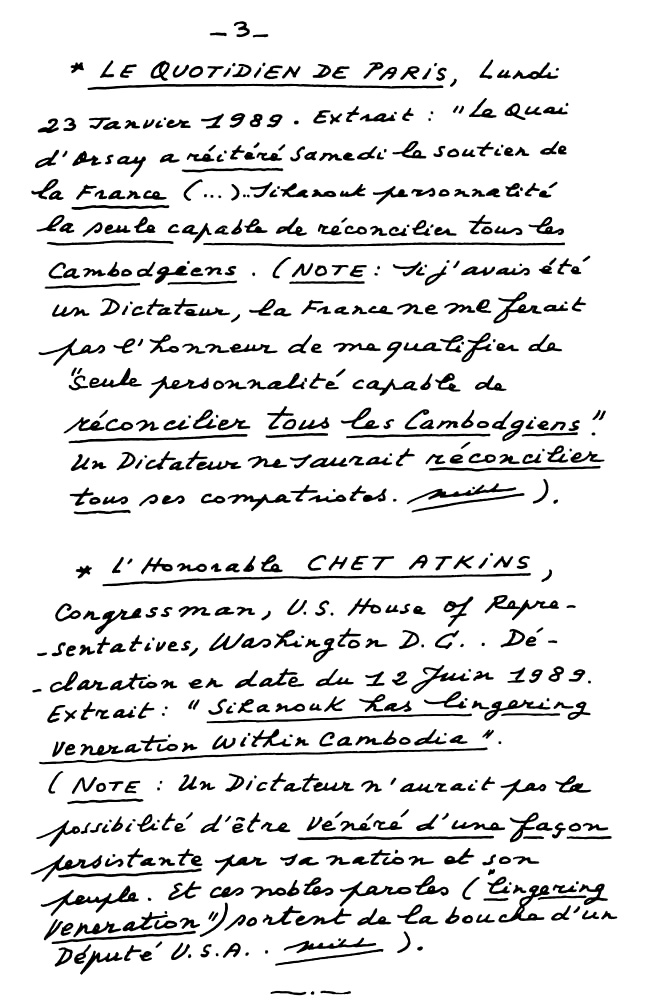 -3-
* LE QUOTIDIEN DE PARIS, Lundi
23 Janvier 1989. Extrait : "Le Quai
d'Orsay a réitéré Samedi le soutien de
la France (...).. Sihanouk personnalité
la seule capable de réconcilier tous les
Cambodgiens. (NOTE : Si j'avais été
un Dictateur, la France ne me ferait
pas l'honneur de me qualifier de
"Seule personnalité capable de
réconcilier tous les Cambodgiens"!
Un Dictateur ne saurait réconcilier
tous ses compatriotes. ).
* L'Honorable CHET ATKINS,
Congressman, U.S. House of Repre-
-sentatives, Washington D.C. . Dé-
-claration en date du 12 Juin 1989.
Extrait : "Sihanouk has lingering
veneration within Cambodia".
(NOTE : Un Dictateur n'aurait pas la
possibilité d'être vénéré d'une façon
persistante par sa nation et son
peuple. Et ces nobles paroles ("lingering
veneration") sortent de la bouche d'un
Député U.S.A. . ).